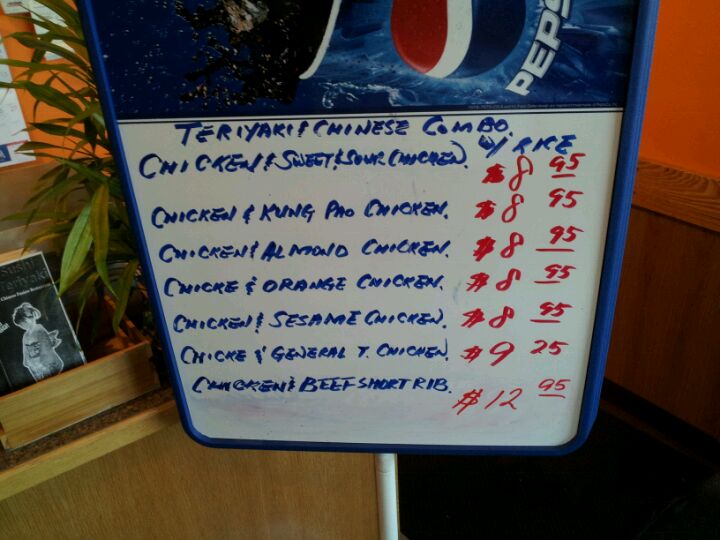 PEPSI
TERIYAKI & CHINESE COMBO.
W/ RICE
CHICKEN & SWEET & SOUR CHICKEN. $8 95
CHICKEN & KUNG PAO CHICKEN. $8 95
CHICKEN & ALMOND CHICKEN. $8 95
CHICKE & ORANGE CHICKEN. $8 95
CHICKEN & SESAME CHICKEN. $8 95
CHICKE & GENERAL T. CHICKEN. $9 25
CHICKEN & BEEF SHORT RIB. $12 95
Teriyaki